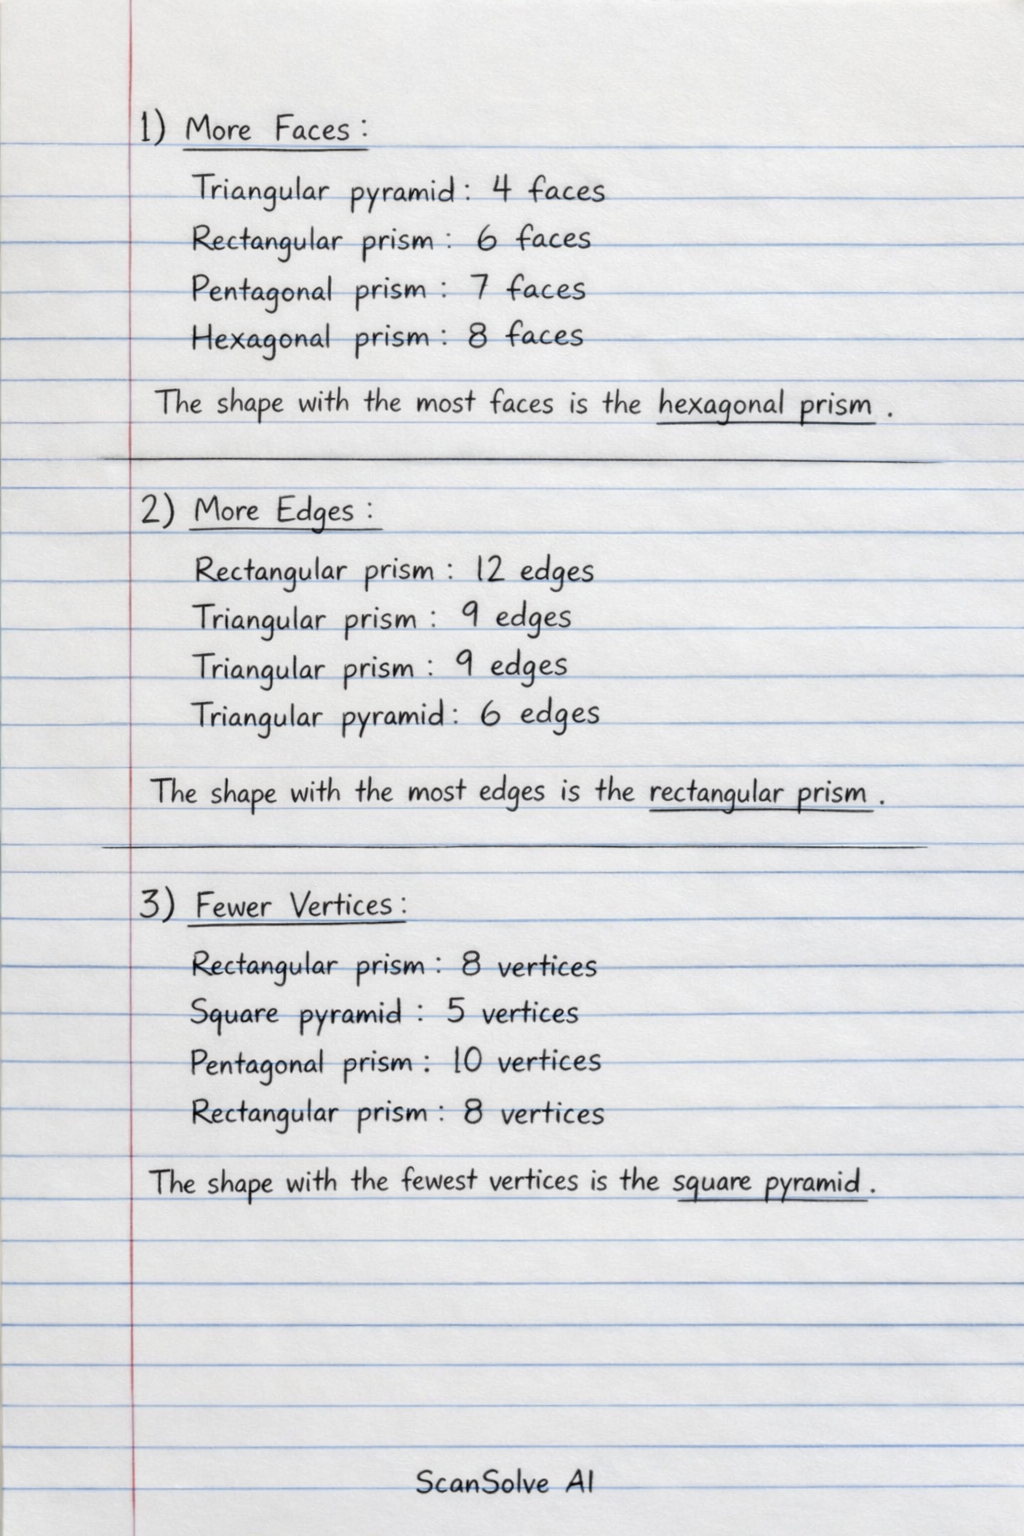 1) More Faces:
Triangular pyramid: 4 faces
Rectangular prism: 6 faces
Pentagonal prism: 7 faces
Hexagonal prism: 8 faces
The shape with the most faces is the hexagonal prism.
2) More Edges:
Rectangular prism: 12 edges
Triangular prism: 9 edges
Triangular prism: 9 edges
Triangular pyramid: 6 edges
The shape with the most edges is the rectangular prism.
3) Fewer Vertices:
Rectangular prism: 8 vertices
Square pyramid: 5 vertices
Pentagonal prism: 10 vertices
Rectangular prism: 8 vertices
The shape with the fewest vertices is the square pyramid.
ScanSolve AI